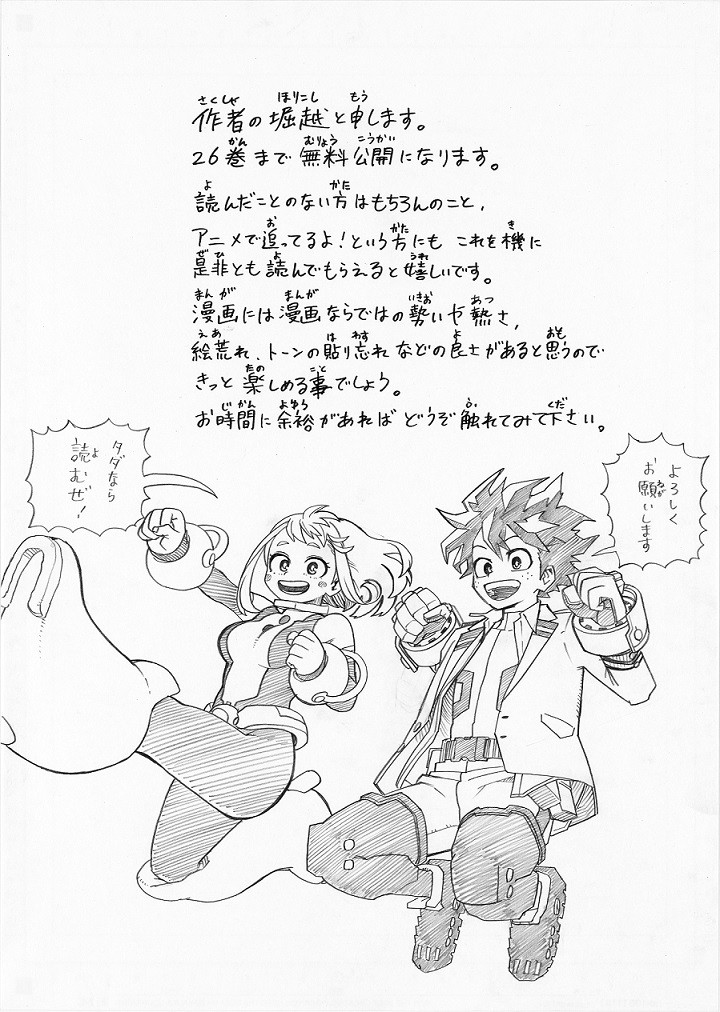 作者の堀越と申します。
26巻まで無料公開になります。
読んだことのない方はもちろんのこと、
アニメで追ってるよ!という方にも これを機に
是非とも読んでもらえると嬉しいです。
漫画には漫画ならではの勢いや熱さ、
絵荒れ、トーンの貼り忘れなどの良さがあると思うので
きっと楽しめる事でしょう。
お時間に余裕があれば どうぞ触れてみて下さい。
よろしく
お願いします
タダなら
読むぜ!